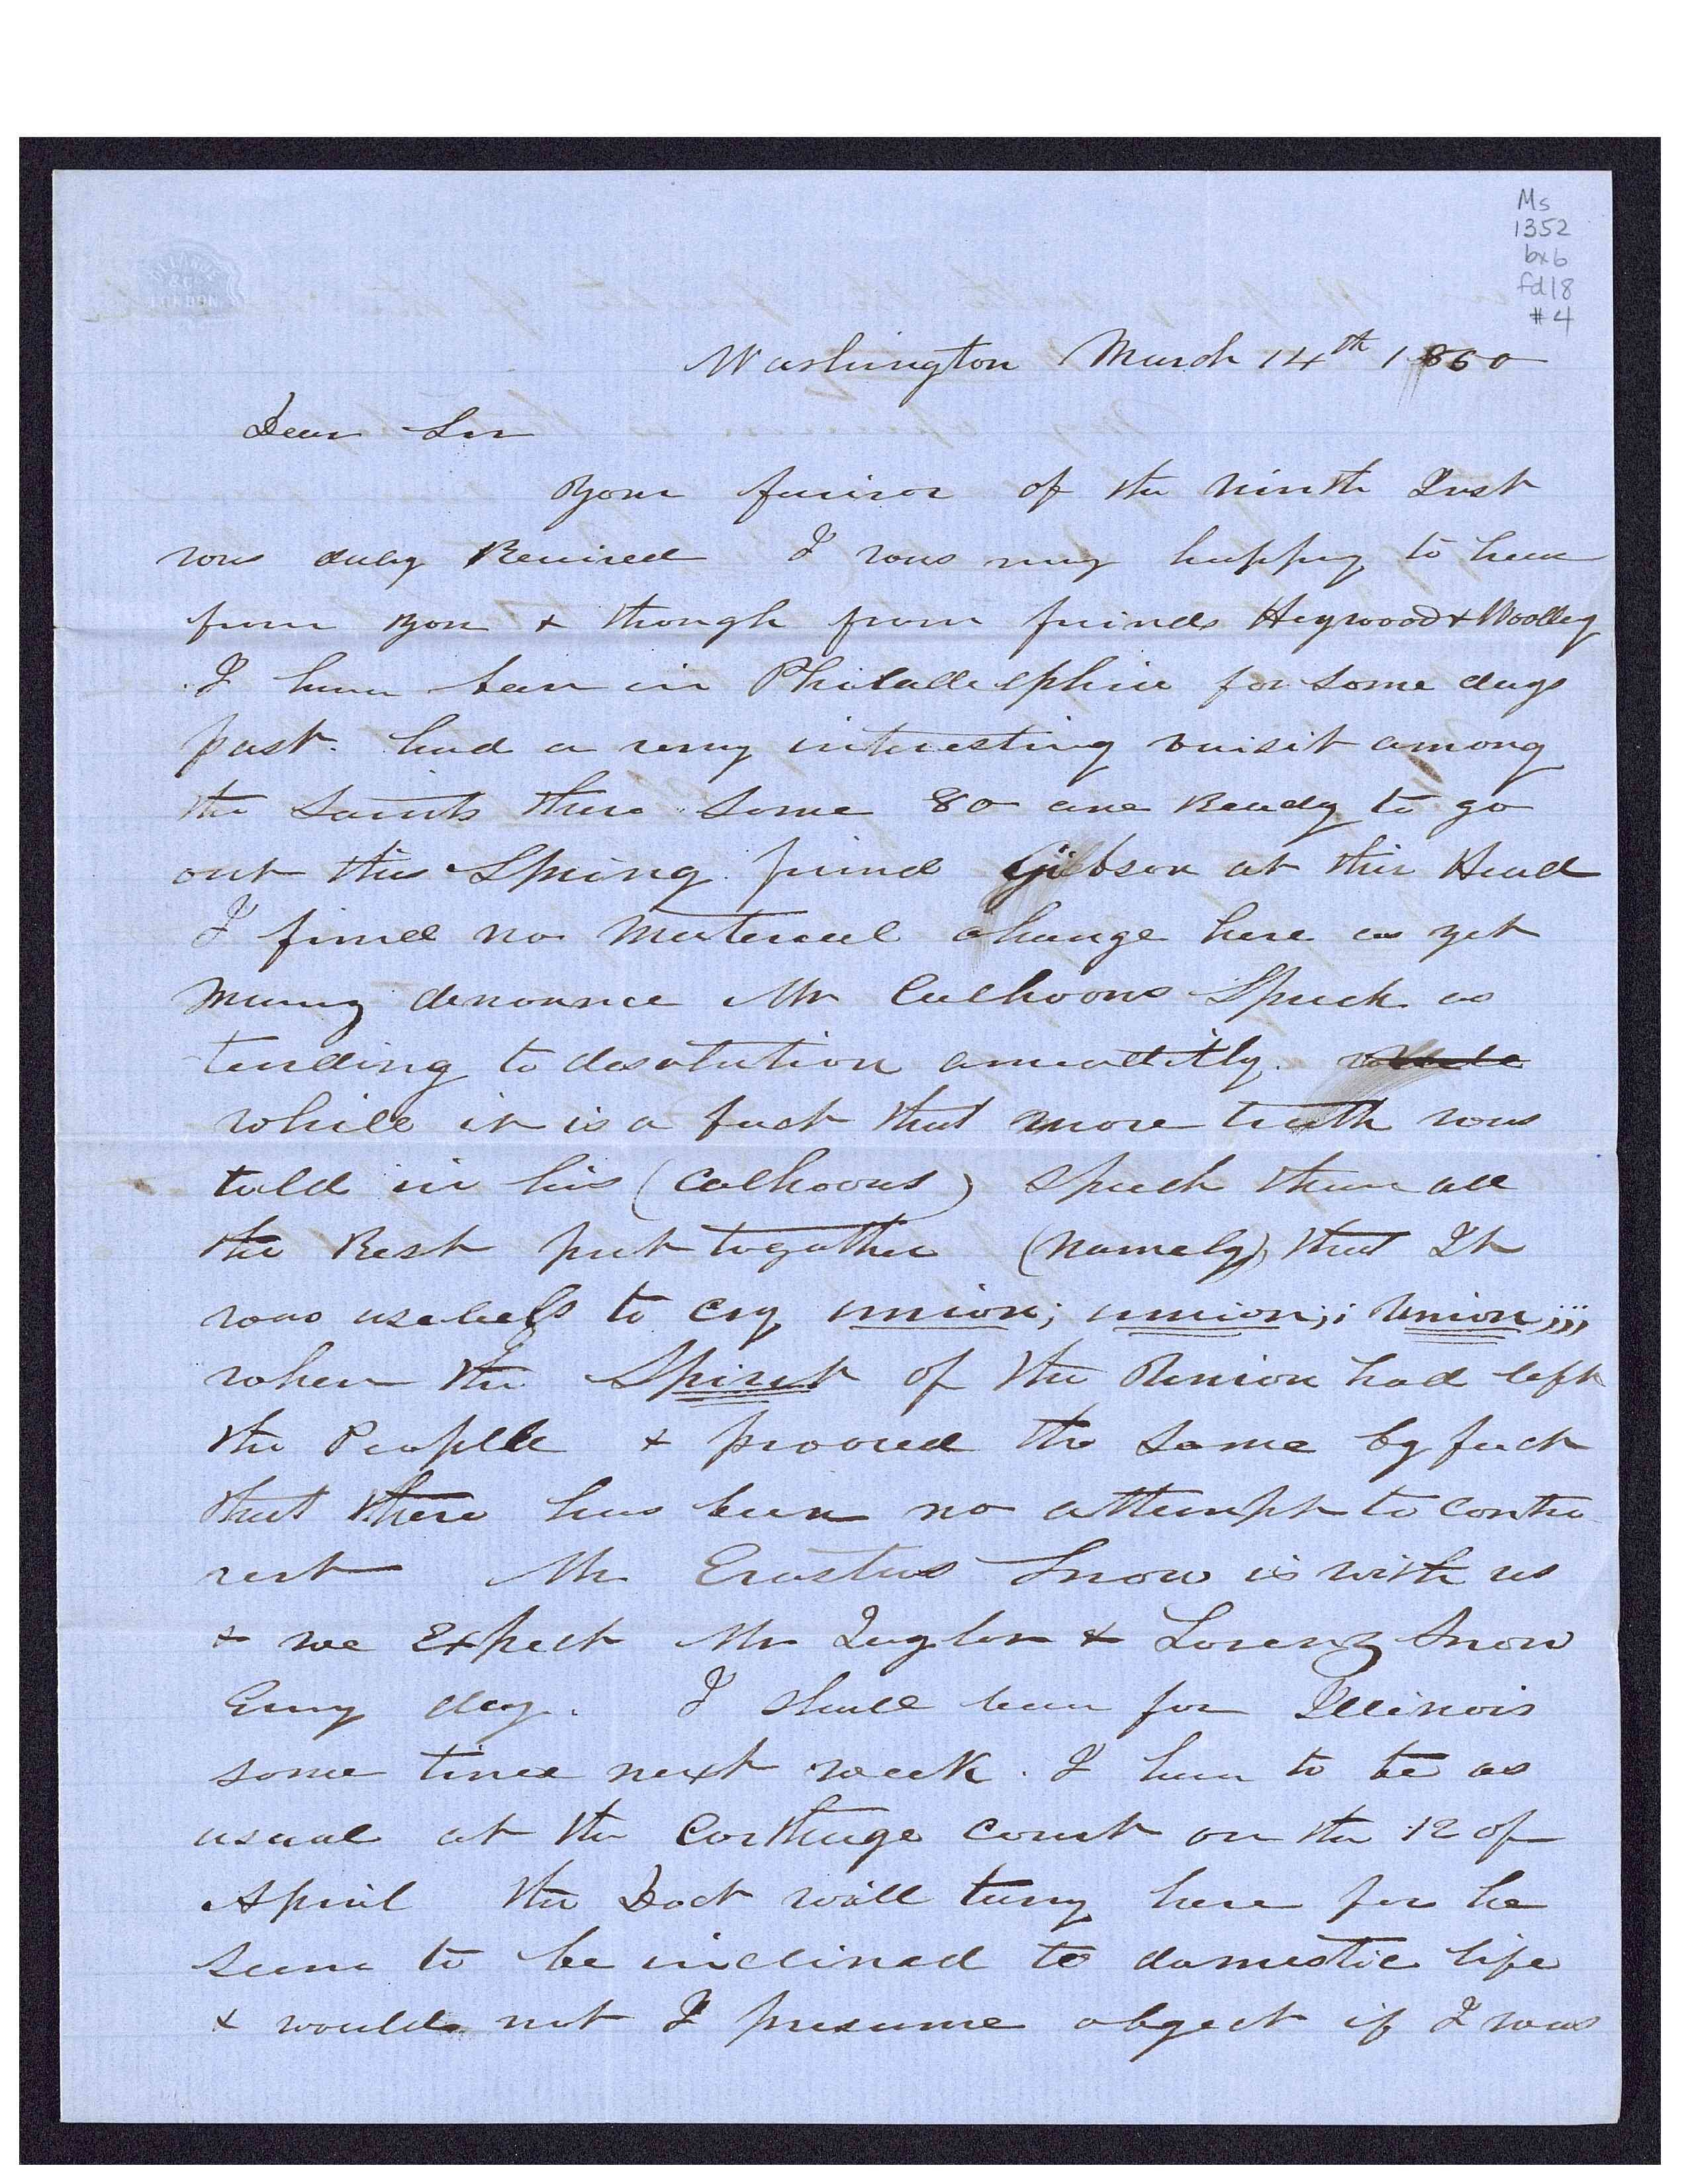 Ms
1352
bx6
fd18
#4
LONDON
Washington March 14th 1860
Dear Sir
your favor of the ninth Inst
was duly Received I was very happy to hear
from you & though from friends Heywood & Woolley
I have been in Philadelphia for some days
past. had a very interesting visit among
the Saints there some 80 are Ready to go
out this Spring friend Gibson at their Head
I find no material change here as yet
many denounce Mr Calhoons Speech as
tending to desolution
while it is a fact that more truth was
told in his (Calhoons) Speech than all
the Rest put togather (namely) that It
was useless to cry union; union;; union;;;
when the Spirit of the Union had left
the People & prooved the same by fact
that there has been no attempt to contro
vert Mr Erastus Snow is with us
& we Expect Mr Taylor & Lorenz Snow
Evry day. I shall leave for Illinois
some time next week. I have to be as
usual at the Carthage court on the 12 of
April the Doct will tarry here for he
seems to be inclined to domestic life
& would not I presume object if I was